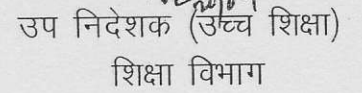 उप निदेशक (उच्च शिक्षा)
शिक्षा विभाग